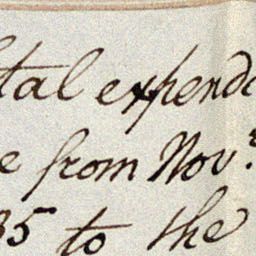 tal expend
e from Novr
35 to the